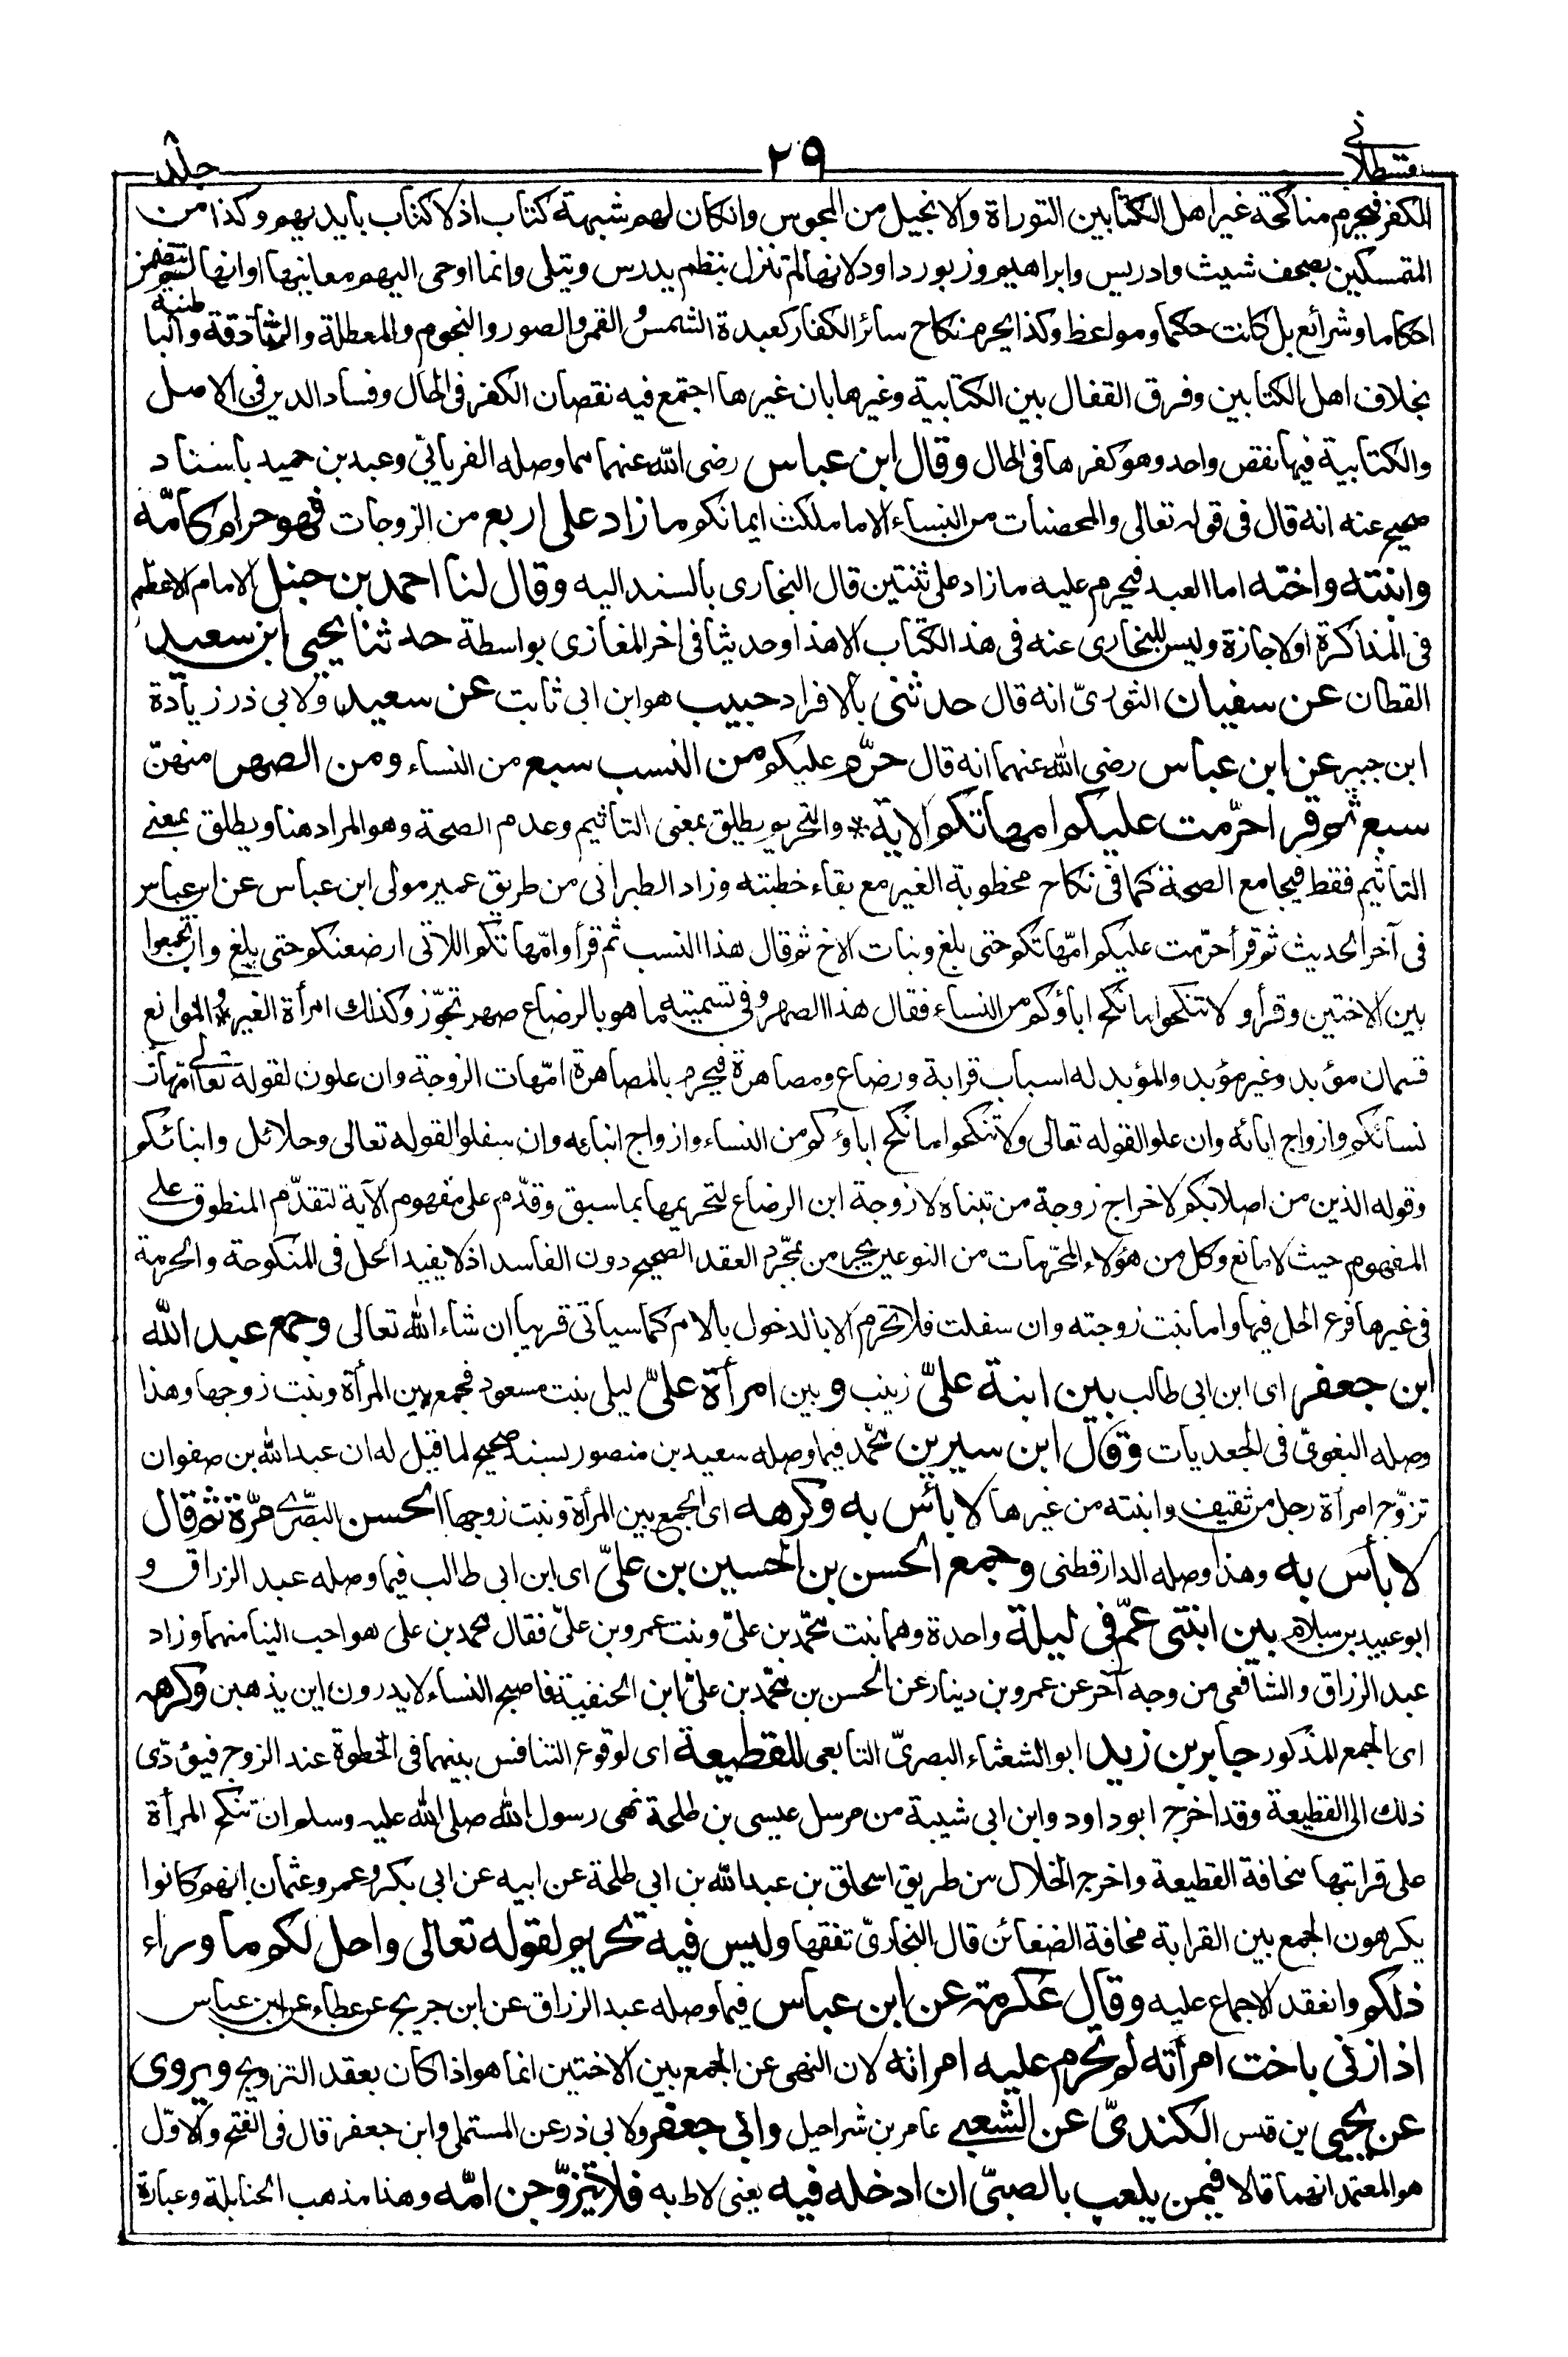 قسطلانی ٢٩ جلد ٨
الكفر فيحرم مناكحة غير اهل الكتابين التوراة والانجيل من المجوس وان كان لهم شبهة كتاب اذ لا كتاب بايديهم وكذا من
المتمسكين بصحف شيث وادريس وابراهيم وزبور داود لانها لم تنزل بنظم يدرس ويتلى وانما اوحى اليهم معانيها او انها لم تتضمن
احكاما وشرائع بل كانت حكما ومواعظ وكذا يحرم نكاح سائر الكفار كعبدة الشمس والقمر والصور والنجوم والمعطلة والزنادقة والباطنية
بخلاف اهل الكتابين وفرق القفال بين الكتابية وغيرها بان غيرها اجتمع فيه نقصان الكفر فى الحال وفساد الدين فى الاصل
والكتابية فيها نقص واحد وهو كفرها فى الحال وقال ابن عباس رضى الله عنهما مما وصله الفريابىّ وعبد بن حميد باسناد
صحيح عنه انه قال فى قوله تعالى والمحصنات من النساء الا ما ملكت ايمانكم ما زاد على اربع من الزوجات فهو حرام كامّه
وابنته واخته اما العبد فيحرم عليه ما زاد على ثنتين قال البخارى بالسند اليه وقال لنا احمد بن حنبل الامام الاعظم
فى المذاكرة او الاجازة وليس للبخارى عنه فى هذا الكتاب الا هذا وحديثا فى اخر المغازى بواسطة حدثنا يحيى ابن سعيد
القطان عن سفيان الثورىّ انه قال حدثنى بالافراد حبيب هو ابن ابى ثابت عن سعيد ولابى ذر زيادة
ابن جبير عن ابن عباس رضى الله عنهما انه قال حرّم عليكم من النسب سبع من النساء ومن الصهر منهنّ
سبع ثم قرا حرّمت عليكم امهاتكم الآية * والتحريم يطلق بمعنى التاثيم وعدم الصحة وهو المراد هنا ويطلق بمعنى
التاثيم فقط فيجامع الصحة كما فى نكاح مخطوبة الغير مع بقاء خطبته وزاد الطبرانى من طريق عمير مولى ابن عباس عن ابن عباس
فى آخر الحديث ثم قرأ حرّمت عليكم امّهاتكم حتى بلغ وبنات الاخ ثم قال هذا النسب ثم قرأ وامّهاتكم اللاتى ارضعنكم حتى بلغ وان تجمعوا
بين الاختين وقرأ ولا تنكحوا ما نكح اباؤكم من النساء فقال هذا الصهر وفى تسميته ما هو بالرضاع صهر تجوّز وكذلك امرأة الغير * والموانع
قسمان مؤبد وغير مؤبد والمؤبد له اسباب قرابة ورضاع ومصاهرة فيحرم بالمصاهرة امّهات الزوجة وان علون لقوله تعالى امّهات
نسائكم وازواج ابائه وان علوا لقوله تعالى ولا تنكحوا ما نكح اباؤكم من النساء وازواج ابنائه وان سفلوا لقوله تعالى وحلائل وابنائكم
وقوله الذين من اصلابكم لاخراج زوجة من تبناه لا زوجة ابن الرضاع لتحريمها بما سبق وقدّم على مفهوم الآية لتقدّم المنطوق على
المفهوم حيث لا مانع وكل من هؤلاء المحرّمات من النوعين يحرمن بمجرّد العقد الصحيح دون الفاسد اذ لا يفيد الحل فى المنكوحة والحرمة
فى غيرها فرع الحل فيها واما بنت زوجته وان سفلت فلا تحرم الا بالدخول بالام كما سياتى قريبا ان شاء الله تعالى وجمع عبد الله
ابن جعفر اى ابن ابى طالب بين ابنة علىّ زينب وبين امرأة علىّ ليلى بنت مسعود فجمع بين المرأة وبنت زوجها وهذا
وصله البغوىّ فى الجعديات وقال ابن سيرين محمّد فيما وصله سعيد بن منصور بسند صحيح لما قيل له ان عبد الله بن صفوان
تزوّج امرأة رجل من ثقيف وابنته من غيرها لا بأس به وكرهه اى الجمع بين المرأة وبنت زوجها الحسن البصرى مرّة ثم قال
لا بأس به وهذا وصله الدارقطنى وجمع الحسن بن الحسين بن علىّ اى ابن ابى طالب فيما وصله عبد الرزاق و
ابو عبيد بن سلام بين ابنتى عمّ فى ليلة واحدة وهما بنت محمّد بن علىّ وبنت عمرو بن علىّ فقال محمد بن على هو احب الينا منهما وزاد
عبد الرزاق والشافعى من وجه آخر عن عمرو بن دينار عن الحسن بن محمّد بن علىّ ابن الحنفية فاصبح النساء لا يدرون اين يذهبن وكرهه
اى الجمع المذكور جابر بن زيد ابو الشعثاء البصرىّ التابعى للقطيعة اى لوقوع التنافس بينهما فى الحظوة عند الزوج فيؤدّى
ذلك الى القطيعة وقد اخرج ابو داود وابن ابى شيبة من مرسل عيسى بن طلحة نهى رسول الله صلى الله عليه وسلم ان تنكح المرأة
على قرابتها مخافة القطيعة واخرج الخلال من طريق اسحاق بن عبد الله بن ابى طلحة عن ابيه عن ابى بكر وعمر وعثمان انهم كانوا
يكرهون الجمع بين القرابة مخافة الضغائن قال البخارىّ تفقها وليس فيه تحريم لقوله تعالى واحل لكم ما وراء
ذلكم وانعقد الاجماع عليه وقال عكرمة عن ابن عباس فيما وصله عبد الرزاق عن ابن جريج عن عطاء عن ابن عباس
اذا زنى باخت امرأته لم تحرم عليه امراته لان النهى عن الجمع بين الاختين انما هو اذا كان بعقد التزويج ويروى
عن يحيى بن قيس الكندىّ عن الشعبى عامر بن شراحيل وابى جعفر ولابى ذر عن المستملى وابن جعفر قال فى الفتح والاوّل
هو المعتمد انهما قالا فيمن يلعب بالصبىّ ان ادخله فيه يعنى لاط به فلا يتزوّجن امّه وهذا مذهب الحنابلة وعبارة